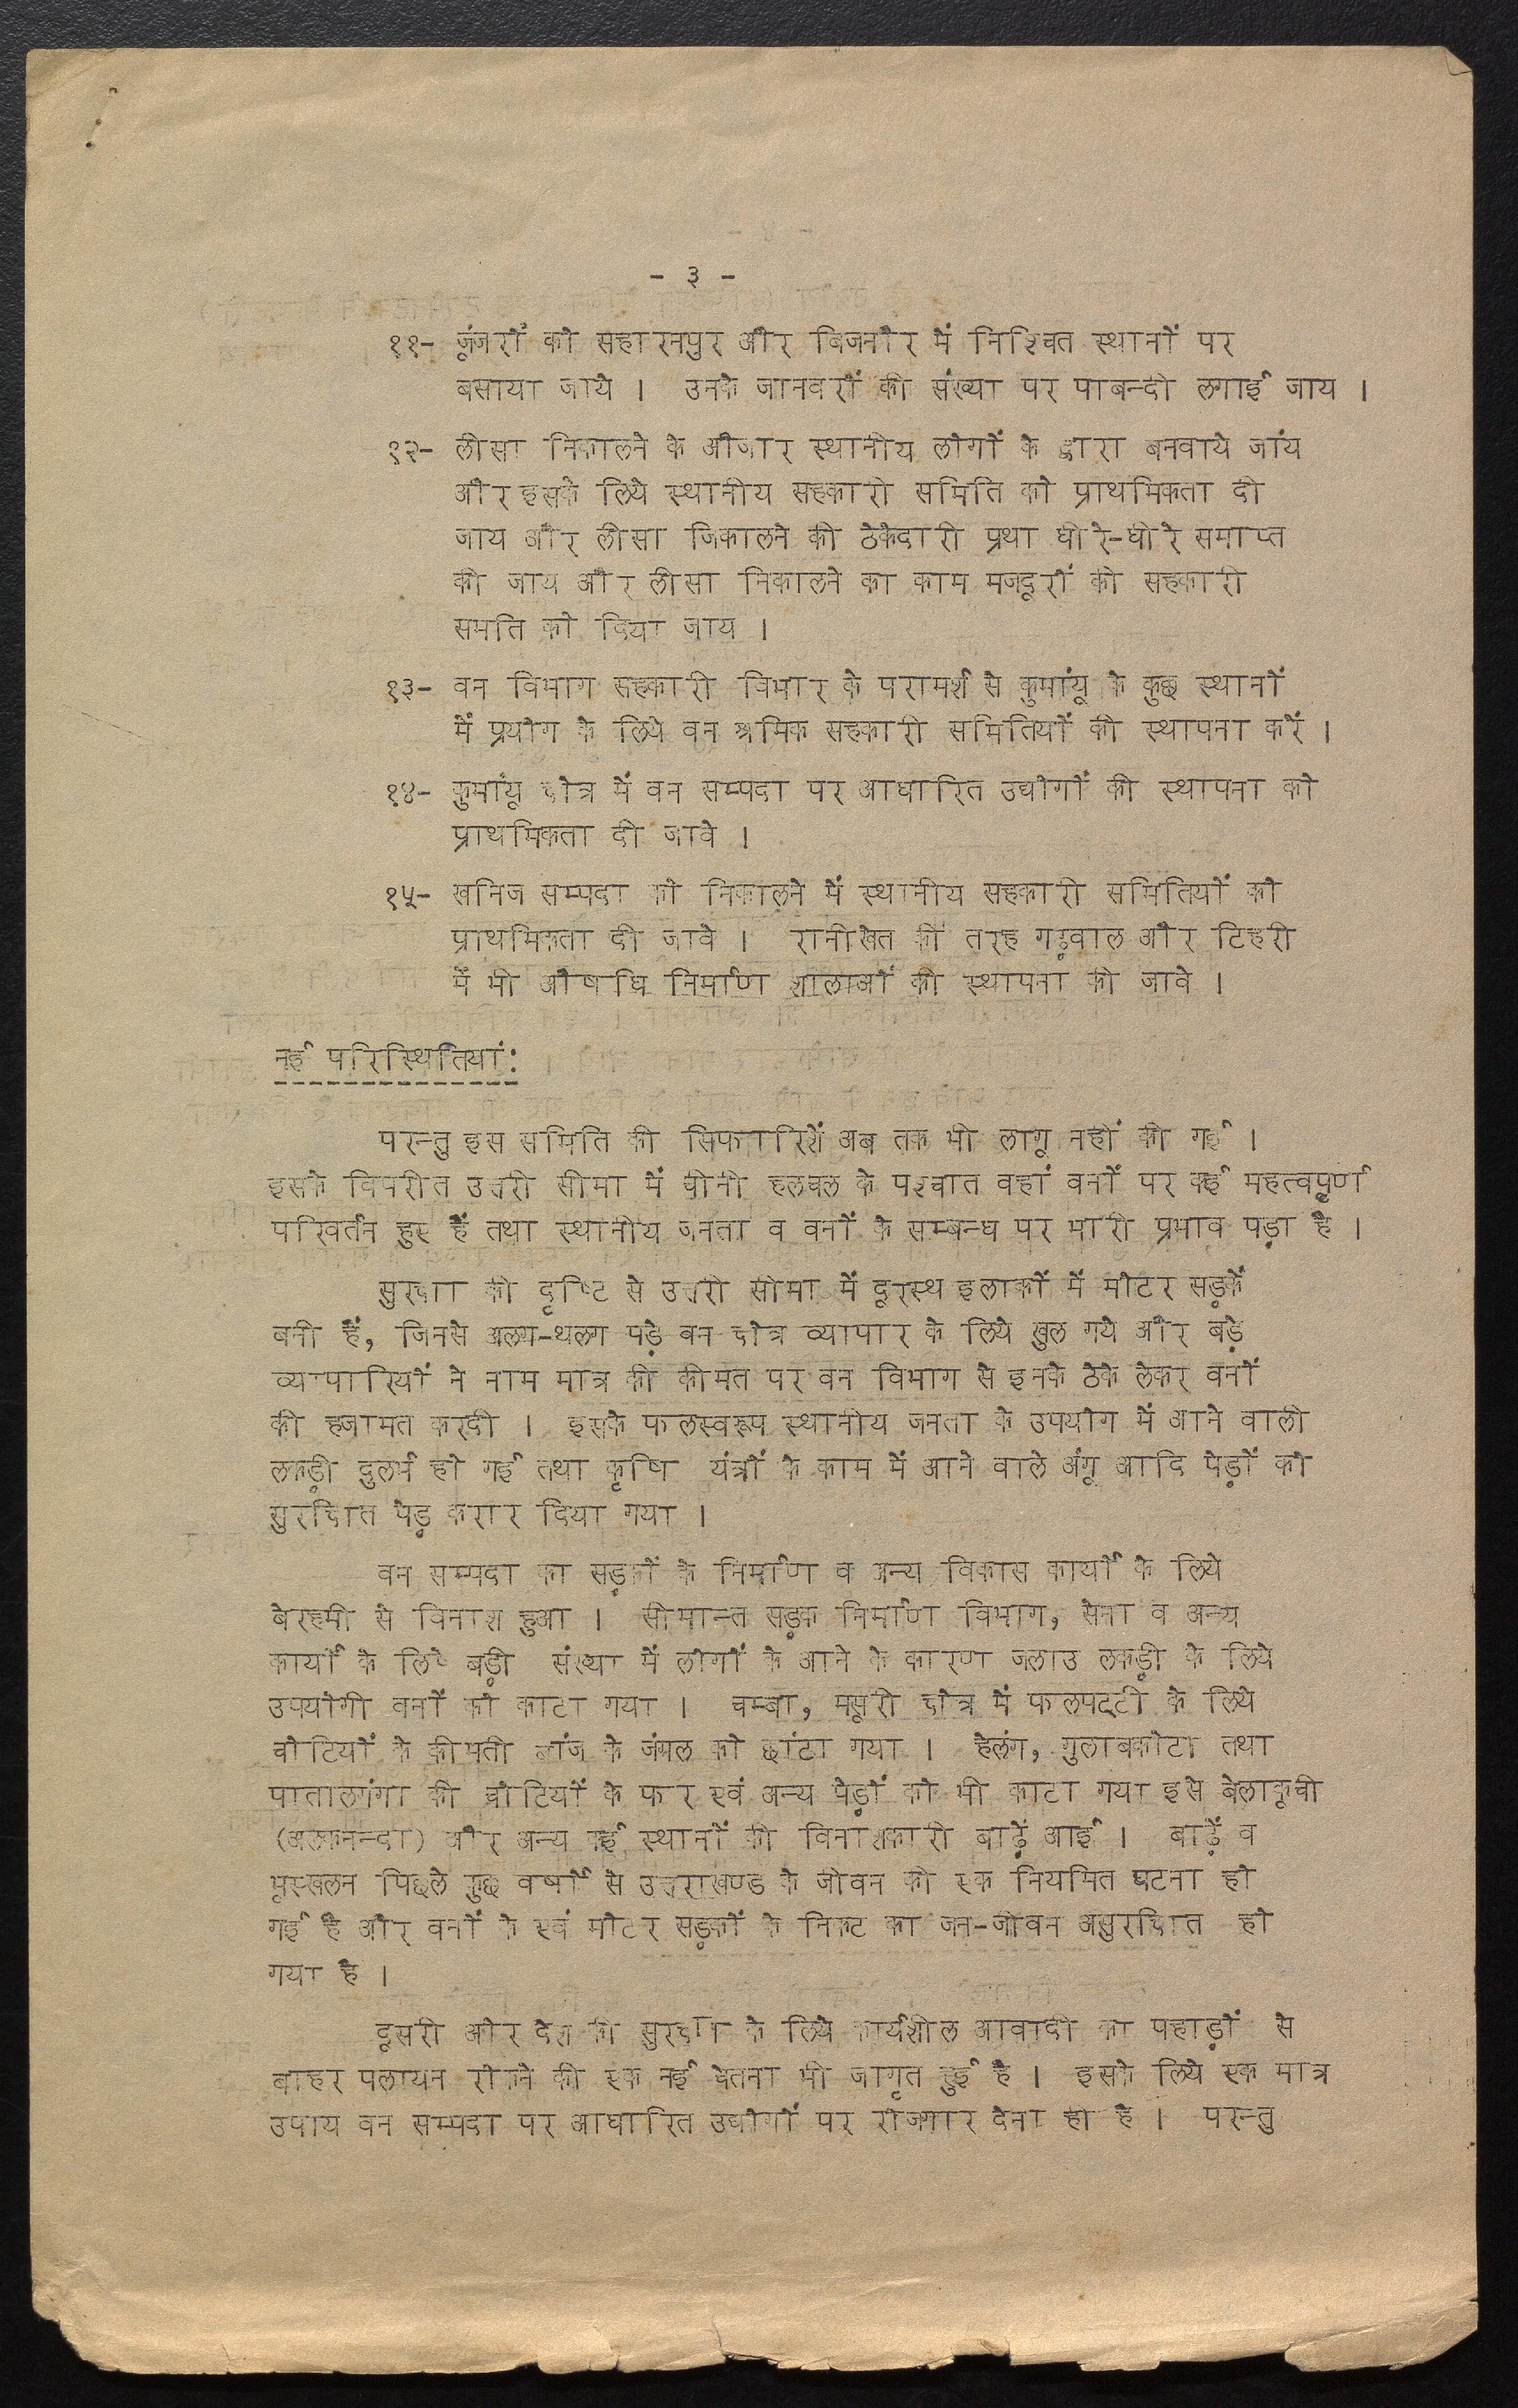 - ३ -
११- जूंजरों को सहारनपुर और बिजनौर में निश्चित स्थानों पर
बसाया जाये । उनके जानवरों की संख्या पर पाबन्दी लगाई जाय ।
१२- लीसा निकालने के औजार स्थानीय लोगों के द्वारा बनवाये जांय
और इसके लिये स्थानीय सहकारी समिति को प्राथमिकता दी
जाय और लीसा जिकालने की ठेकेदारी प्रथा धीरे-धीरे समाप्त
की जाय और लीसा निकालने का काम मजदूरों की सहकारी
समति को दिया जाय ।
१३- वन विभाग सहकारी विभार के परामर्श से कुमांयू के कुछ स्थानों
में प्रयोग के लिये वन श्रमिक सहकारी समितियों की स्थापना करें ।
१४- कुमांयू क्षेत्र में वन सम्पदा पर आधारित उद्योगों की स्थापना को
प्राथमिकता दी जावे ।
१५- खनिज सम्पदा को निकालने में स्थानीय सहकारी समितियों को
प्राथमिकता दी जावे । रानीखेत की तरह गढ़वाल और टिहरी
में भी औषधि निर्माण शालाओं की स्थापना की जावे ।
नई परिस्थितियां:
परन्तु इस समिति की सिफारिशें अब तक भी लागू नहीं की गई ।
इसके विपरीत उत्तरी सीमा में चीनी हलचल के पश्चात वहां वनों पर कई महत्वपूर्ण
परिवर्तन हुए हैं तथा स्थानीय जनता व वनों के सम्बन्ध पर भारी प्रभाव पड़ा है ।
सुरक्षा की दृष्टि से उत्तरी सीमा में दूरस्थ इलाकों में मोटर सड़कें
बनी हैं, जिनसे अलग-थलग पड़े वन क्षेत्र व्यापार के लिये खुल गये और बड़े
व्यापारियों ने नाम मात्र की कीमत पर वन विभाग से इनके ठेके लेकर वनों
की हजामत करदी । इसके फलस्वरूप स्थानीय जनता के उपयोग में आने वाली
लकड़ी दुलर्भ हो गई तथा कृषि यंत्रों के काम में आने वाले अंगू आदि पेड़ों को
सुरक्षित पेड़ करार दिया गया ।
वन सम्पदा का सड़कों के निर्माण व अन्य विकास कार्यों के लिये
बेरहमी से विनाश हुआ । सीमान्त सड़क निर्माण विभाग, सेना व अन्य
कार्यों के लिये बड़ी संख्या में लोगों के आने के कारण जलाउ लकड़ी के लिये
उपयोगी वनों को काटा गया । चम्बा, मसूरी क्षेत्र में फलपट्टी के लिये
चोटियों के कीमती बांज के जंगल को छांटा गया । हेलंग, गुलाबकोटी तथा
पातालगंगा की चोटियों के फर एवं अन्य पेड़ों को भी काटा गया इसे बेलाकूची
(अलकनन्दा) और अन्य कई स्थानों की विनाशकारी बाढ़ें आई । बाढ़ें व
भूस्खलन पिछले कुछ वर्षों से उत्तराखण्ड के जीवन की एक नियमित घटना हो
गई है और वनों के एवं मोटर सड़कों के निकट का जन-जीवन असुरक्षित हो
गया है ।
दूसरी ओर देश की सुरक्षा के लिये कार्यशील आवादी का पहाड़ों से
बाहर पलायन रोकने की एक नई चेतना भी जागृत हुई है । इसके लिये एक मात्र
उपाय वन सम्पदा पर आधारित उद्योगों पर रोजगार देना ही है । परन्तु